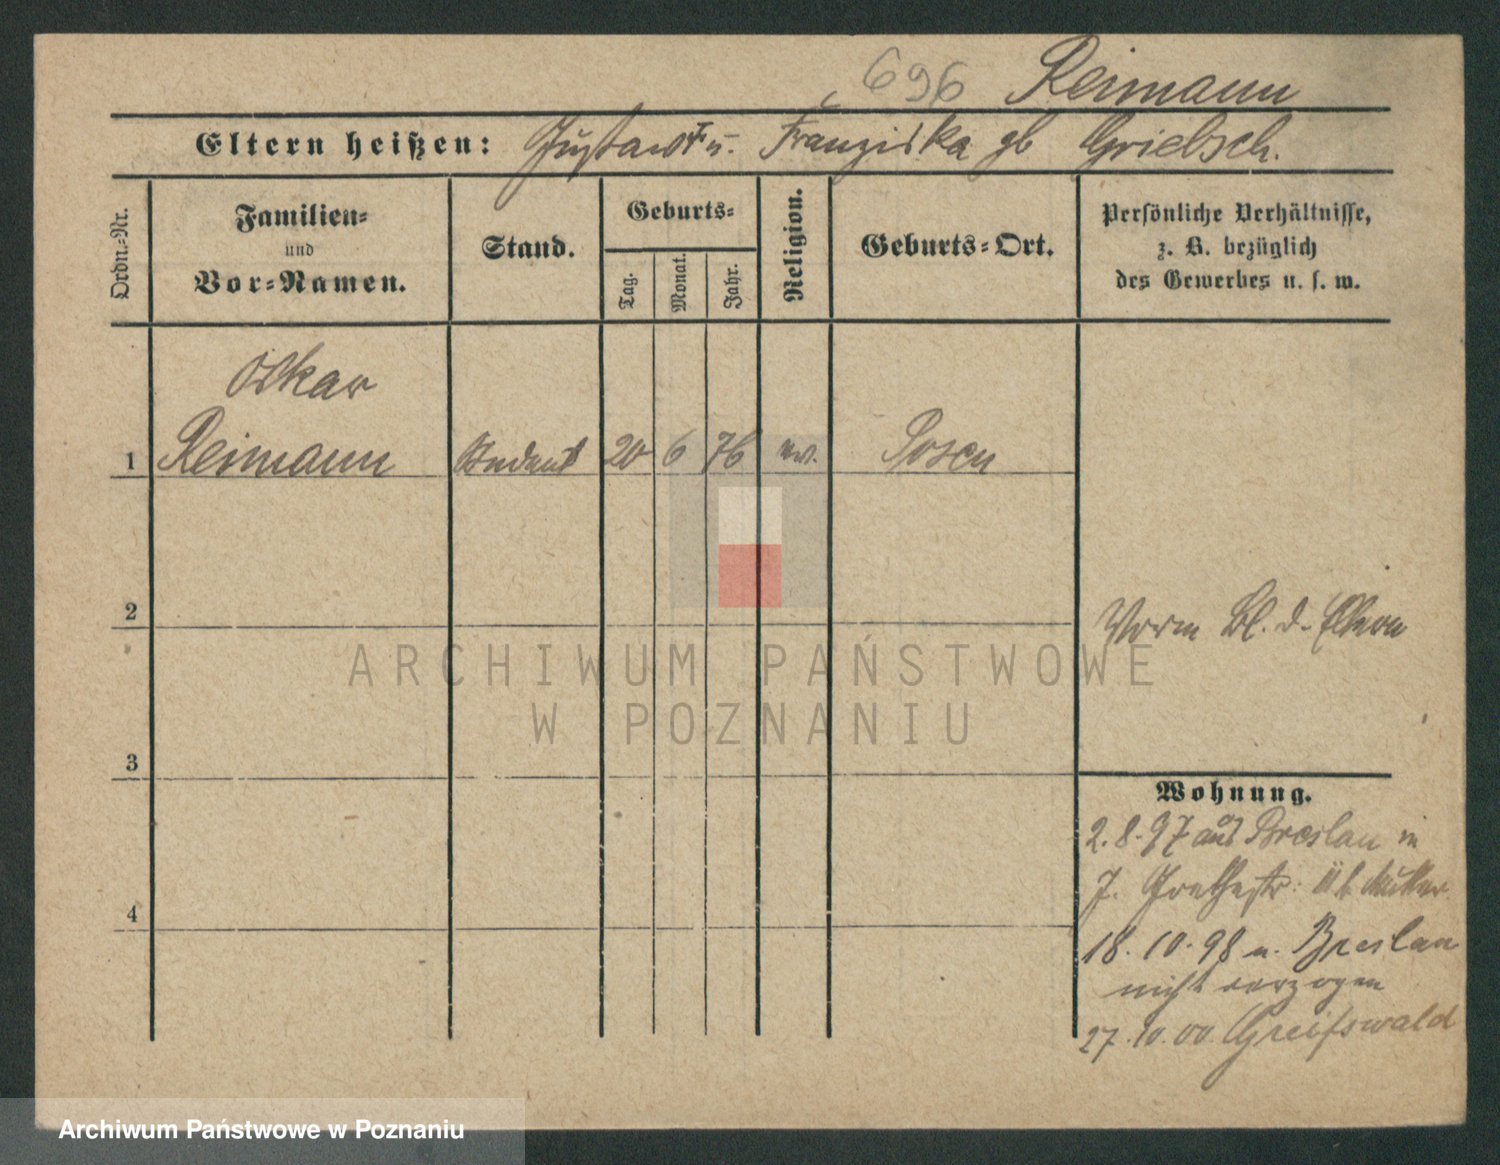 696 Reimann
Eltern heißen: Gustav u. Franziska gb Grielsch.
Ordn.=Nr.
Familien=
und
Vor=Namen.
Stand.
Geburts=
Tag.
Monat.
Jahr.
Religion.
Geburts=Ort.
Persönliche Verhältnisse,
z. B. bezüglich
des Gewerbes u. s. w.
Oskar
1 Reimann Student 20 6 76 ev. Posen
2
Vorm Bl. d. Eltern
3
4
Wohnung.
2.8.97 aus Breslau in
J. Goethestr: b Mutter
18.10.98 n. Breslau
nicht verzogen
27.10.00 Greifswald
ARCHIWUM PAŃSTWOWE
W POZNANIU
Archiwum Państwowe w Poznaniu